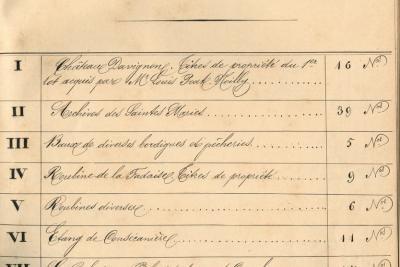 I Château Davignon, Titres de propriété du 1er
lot acquis par Mr Louis Prat Noilly 16 Nos
II Archives des Saintes Maries 39 Nos
III Baux de diverses bordigues et pêcheries 5 Nos
IV Roubine de la Fadaise, Titres de propriété 9 Nos
V Roubines diverses 6 Nos
VI Etang de Consécanière 11 Nos
VII